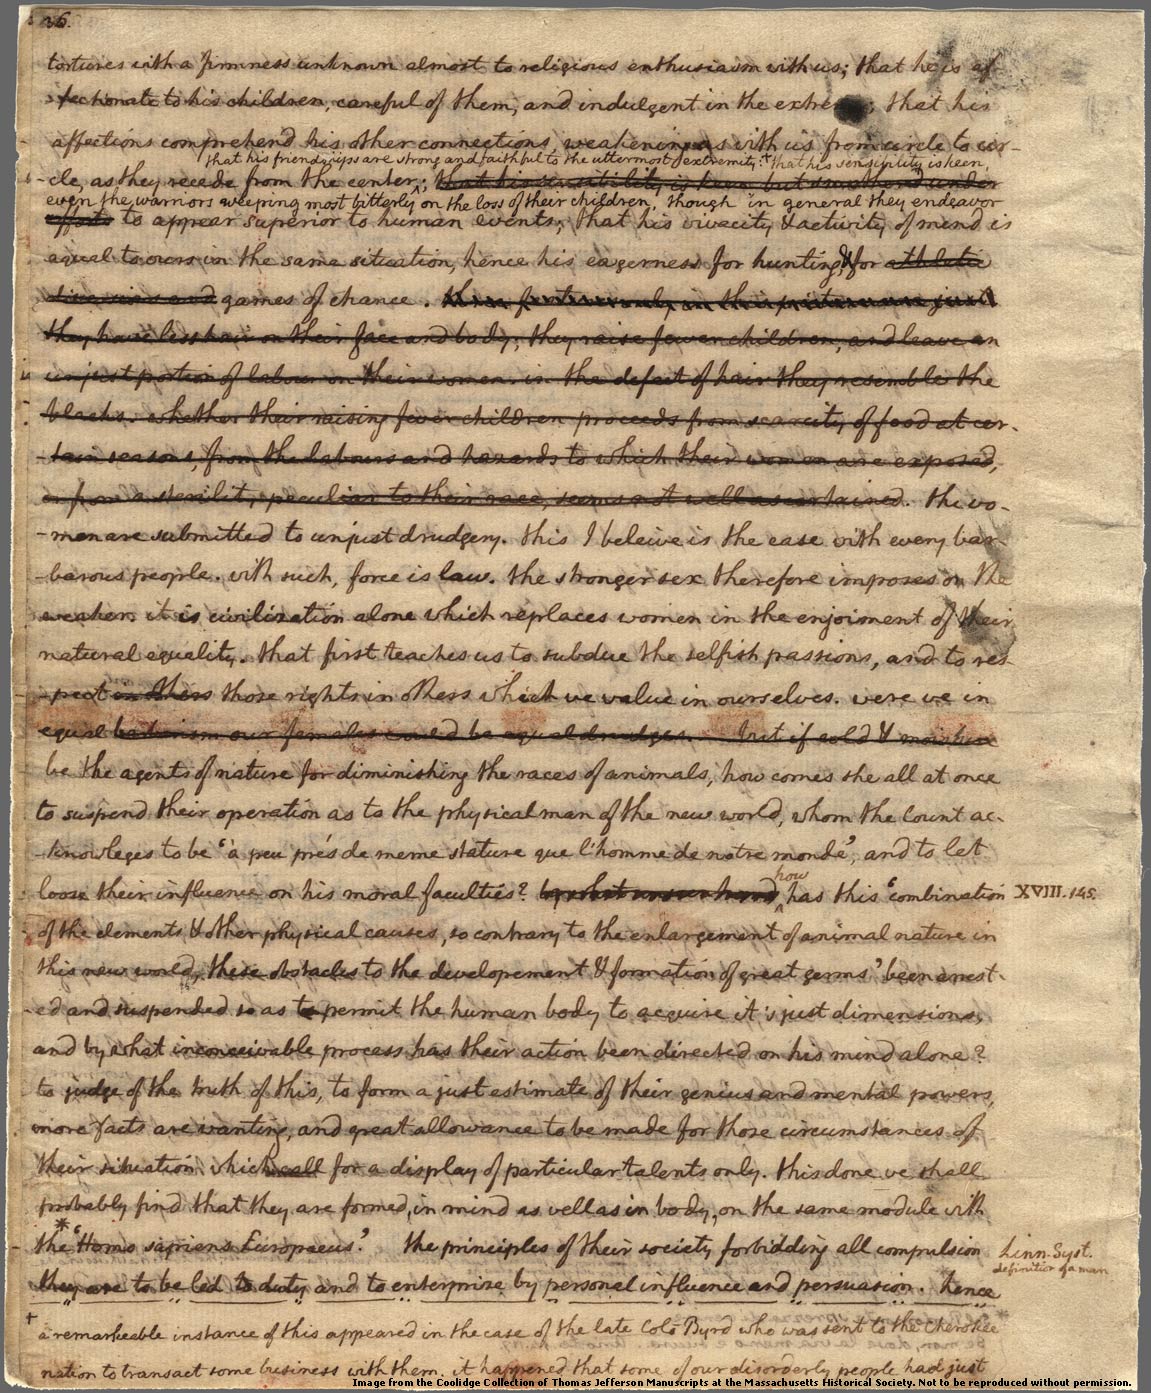 36.
tortures with a firmness unknown almost to religious enthusiasm with us; that he is af-
-fectionate to his children, careful of them, and indulgent in the extreme; that his
affections comprehend his other connections, weakening as with us from circle to cir-
that his friendships are strong and faithful to the uttermost extremity: † that his sensibility is keen,
-cle, as they recede from the center; that his sensibility is keen but smothered under
even the warriors weeping most bitterly on the loss of their children, though in general they endeavor
efforts to appear superior to human events; that his vivacity & activity of mind is
equal to ours in the same situation, hence his eagerness for hunting, & for athletic
diversions and games of chance.
they have less hair on their face and body; they raise fewer children, and leave an
unjust portion of labour on their women. in the defect of hair they resemble the
blacks. whether their raising fewer children proceeds from scarcity of food at cer-
-tain seasons, from the labours and hazards to which their women are exposed,
or from a sterility peculiar to their race, seems not well ascertained. the wo-
-men are submitted to unjust drudgery. this I beleive is the case with every bar-
-barous people. with such, force is law. the stronger sex therefore imposes on the
weaker. it is civilization alone which replaces women in the enjoiment of their
natural equality. that first teaches us to subdue the selfish passions, and to res-
-pect in others those rights in others which we value in ourselves. were we in
equal barbarism our females would be equal drudges. but if cold & moisture
be the agents of nature for diminishing the races of animals, how comes she all at once
to suspend their operation as to the physical man of the new world, whom the Count ac-
-knowleges to be 'à peu prés de meme stature que l'homme de notre monde', and to let
how
loose their influence on his moral faculties? has this 'combination XVIII.145.
of the elements & other physical causes, so contrary to the enlargement of animal nature in
this new world, these obstacles to the developement & formation of great germs' been arrest-
-ed and suspended so as to permit the human body to acquire it's just dimensions,
and by what inconceivable process has their action been directed on his mind alone?
to judge of the truth of this, to form a just estimate of their genius and mental powers,
more facts are wanting, and great allowance to be made for those circumstances of
their situation which call for a display of particular talents only. this done we shall
probably find that they are formed, in mind as well as in body, on the same module with
the *'Homo sapiens Europaeus.' the principles of their society forbidding all compulsion Linn. Syst.
definition of a man
they are to be led to duty and to enterprize by personal influence and persuasion. hence
† a remarkeable instance of this appeared in the case of the late Colo. Byrd who was sent to the Cherokee
nation to transact some business with them. it happened that some of our disorderly people had just
Image from the Coolidge Collection of Thomas Jefferson Manuscripts at the Massachusetts Historical Society. Not to be reproduced without permission.